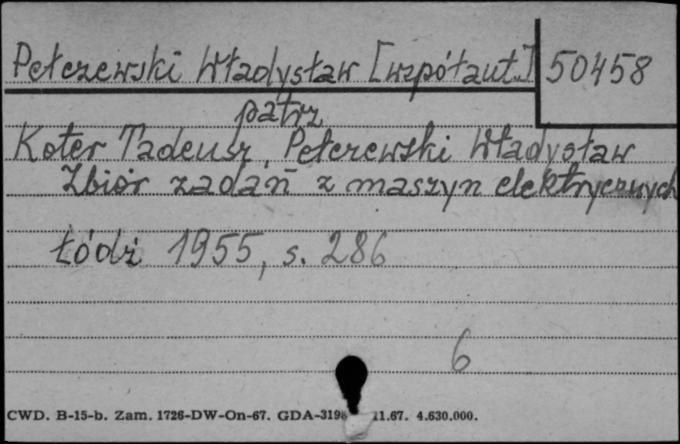 Pełczewski Władysław [współaut.] 50458
patrz
Koter Tadeusz, Pełczewski Władysław
Zbiór zadań z maszyn elektrycznych
Łódź 1955, s. 286
6
CWD. B-15-b. Zam. 1726-DW-On-67. GDA-319 11.67. 4.630.000.